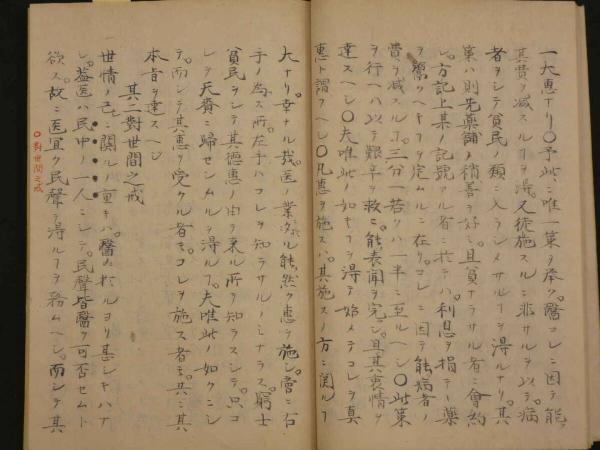 一大惠ナリ〇予此ニ唯一策ヲ挙ク醫コレニ因テ能ク
其費ヲ減スルヿヲ得又徒施スルニ非サルヲ以テ病
者ヲシテ貧民ノ類ニ入ラシメサルヿヲ得ルナリ其
策ハ則先藥舗ノ稍善ヲ好ミ且貧ナラサル者ニ會約
シ方記上某ノ記號アル者ニ於テハ利息ヲ損テ藥
ヲ鬻クヘキヿヲ定ムルニ在リコレニ因テ能病者ノ
費ヲ減スルヿ三分一若クハ一半ニ至ルヘシ〇此策
ヲ行ヘハ以テ艱辛ヲ救ニ能表聞ヲ完シ且其衷情ヲ
達スヘシ〇夫唯此ノ如キヿヲ得テ始メテコレヲ真
惠ト謂フヘシ〇凡惠ヲ施スハ其施スノ方ニ関ルヿ
大ナリ幸ナル哉医ノ業タル能然ク惠ヲ施シ啻ニ右
手ノ為ス所左手ハコレヲ知ラサルノミナラス窮士
貧民ヲシテ其德惠ノ由テ来ル所ヲ知ラスシテ只コ
レヲ天賚ニ歸セシムルヲ得ルヿ夫唯此ノ如クニシ
テ而シテ其惠ヲ受クル者モコレヲ施ス者モ共ニ其
本旨ヲ達スヘシ
其二對世間之戒
世情ノ己ニ関ルノ重キハ醫ニ於ルヨリ甚シキハナ
シ蓋医ハ民中ノ一人ニシテ民聲皆醫ヲ可否セムト
欲ス故ニ医宜ク民聲ヲ得ルヿヲ務ムヘシ而シテ其
〇對世間之戒